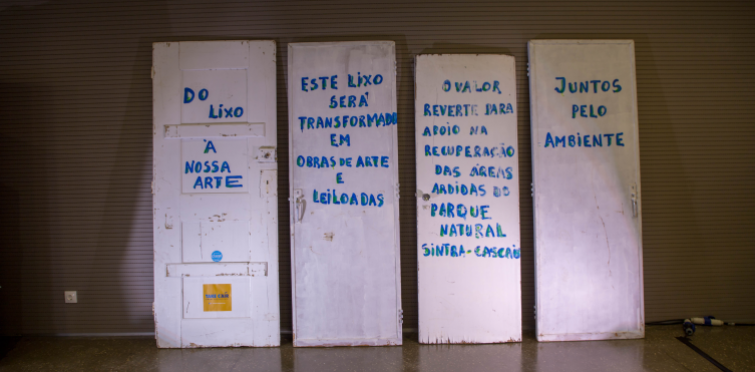 DO
LIXO
À
NOSSA
ARTE
ESTE LIXO
SERÁ
TRANSFORMADO
EM
OBRAS DE ARTE
E
LEILOADAS
O VALOR
REVERTE PARA
APOIO NA
RECUPERAÇÃO
DAS ÁREAS
ARDIDAS DO
PARQUE
NATURAL
SINTRA-CASCAIS
JUNTOS
PELO
AMBIENTE